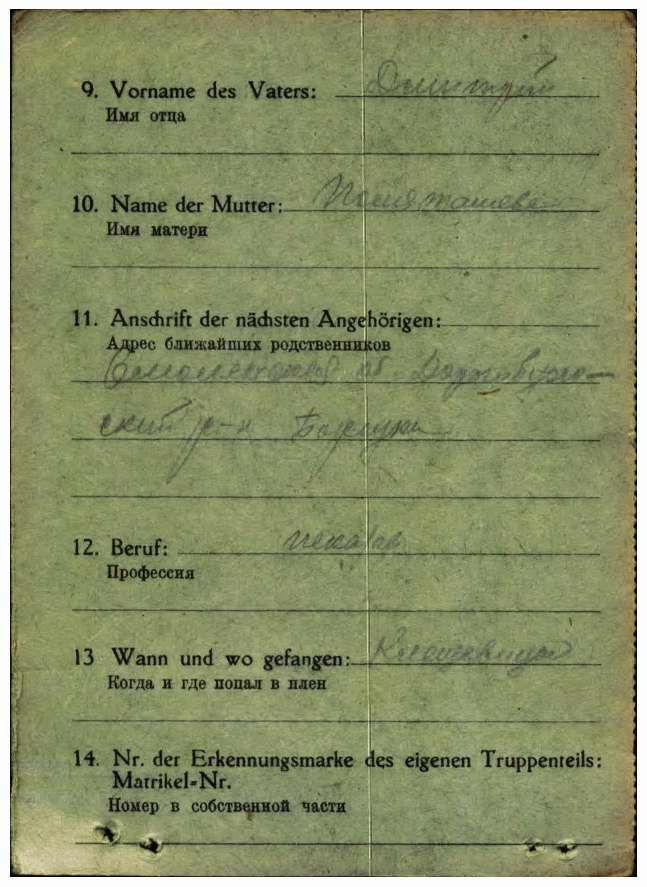 9. Vorname des Vaters: Дмитрий
Имя отца
10. Name der Mutter:
Имя матери
11. Anschrift der nächsten Angehörigen:
Адрес ближайших родственников
об.
ский р-н
12. Beruf: пекарь
Профессия
13 Wann und wo gefangen:
Когда и где попал в плен
14. Nr. der Erkennungsmarke des eigenen Truppenteils:
Matrikel-Nr.
Номер в собственной части